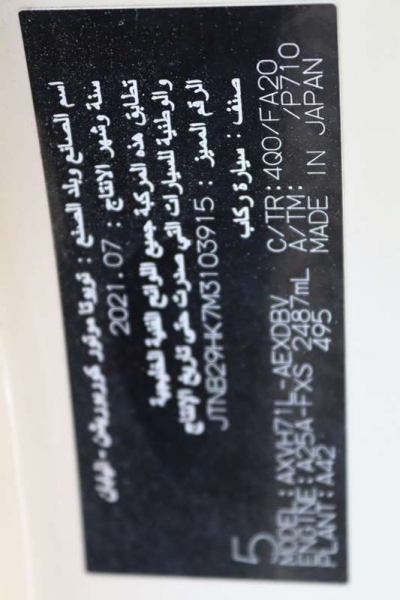 اسم الصانع وبلد الصنع : تويوتا موتور كوربوريشن - اليابان
سنة وشهر الانتاج : 2021.07
تطابق هذه المركبة جميع اللوائح الفنية الخليجية
والوطنية للسيارات التي صدرت حتى تاريخ الإنتاج
الرقم المميز : JTNB29HK7M3103915
صنف : سيارة ركاب
5
MODEL:AXVH71L-AEXDBV C/TR:4Q0/FA20
ENGINE:A25A-FXS 2487mL A/TM: /P710
PLANT:A42 495 MADE IN JAPAN